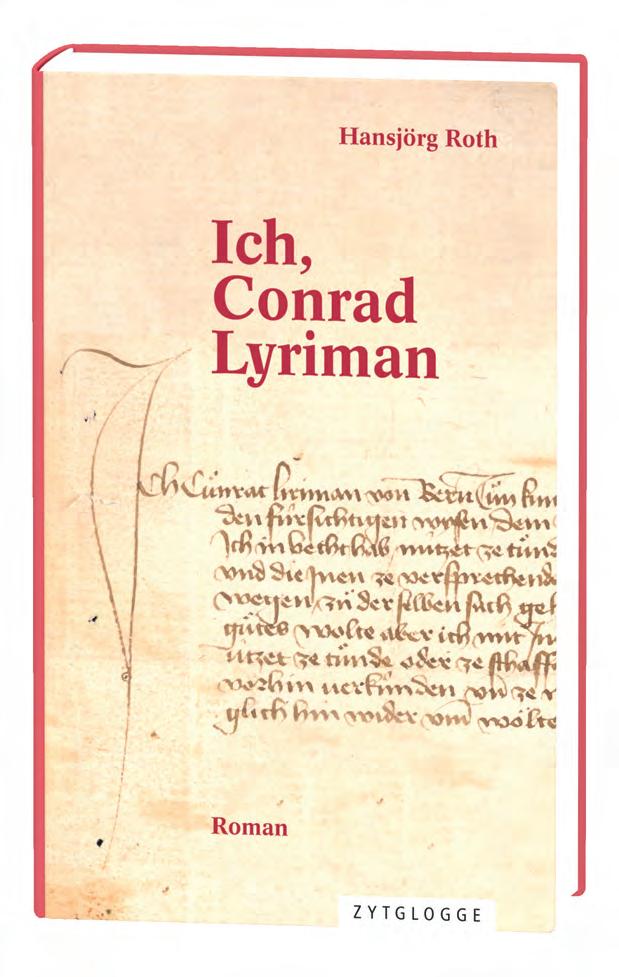 Hansjörg Roth
Ich,
Conrad
Lyriman
Ich Cůnrat liriman von Bern Tun kun
den fürsichtigen wysen dem
Ich in hab nützet ze tůnd
vnd die Inen ze versprechende
wegen zů der selben sach
gůtes wolte aber ich mit In
ützet ze tůnde oder ze schaff
vorhin verkünden vn ze
hin wider vnd wölte
Roman
ZYTGLOGGE